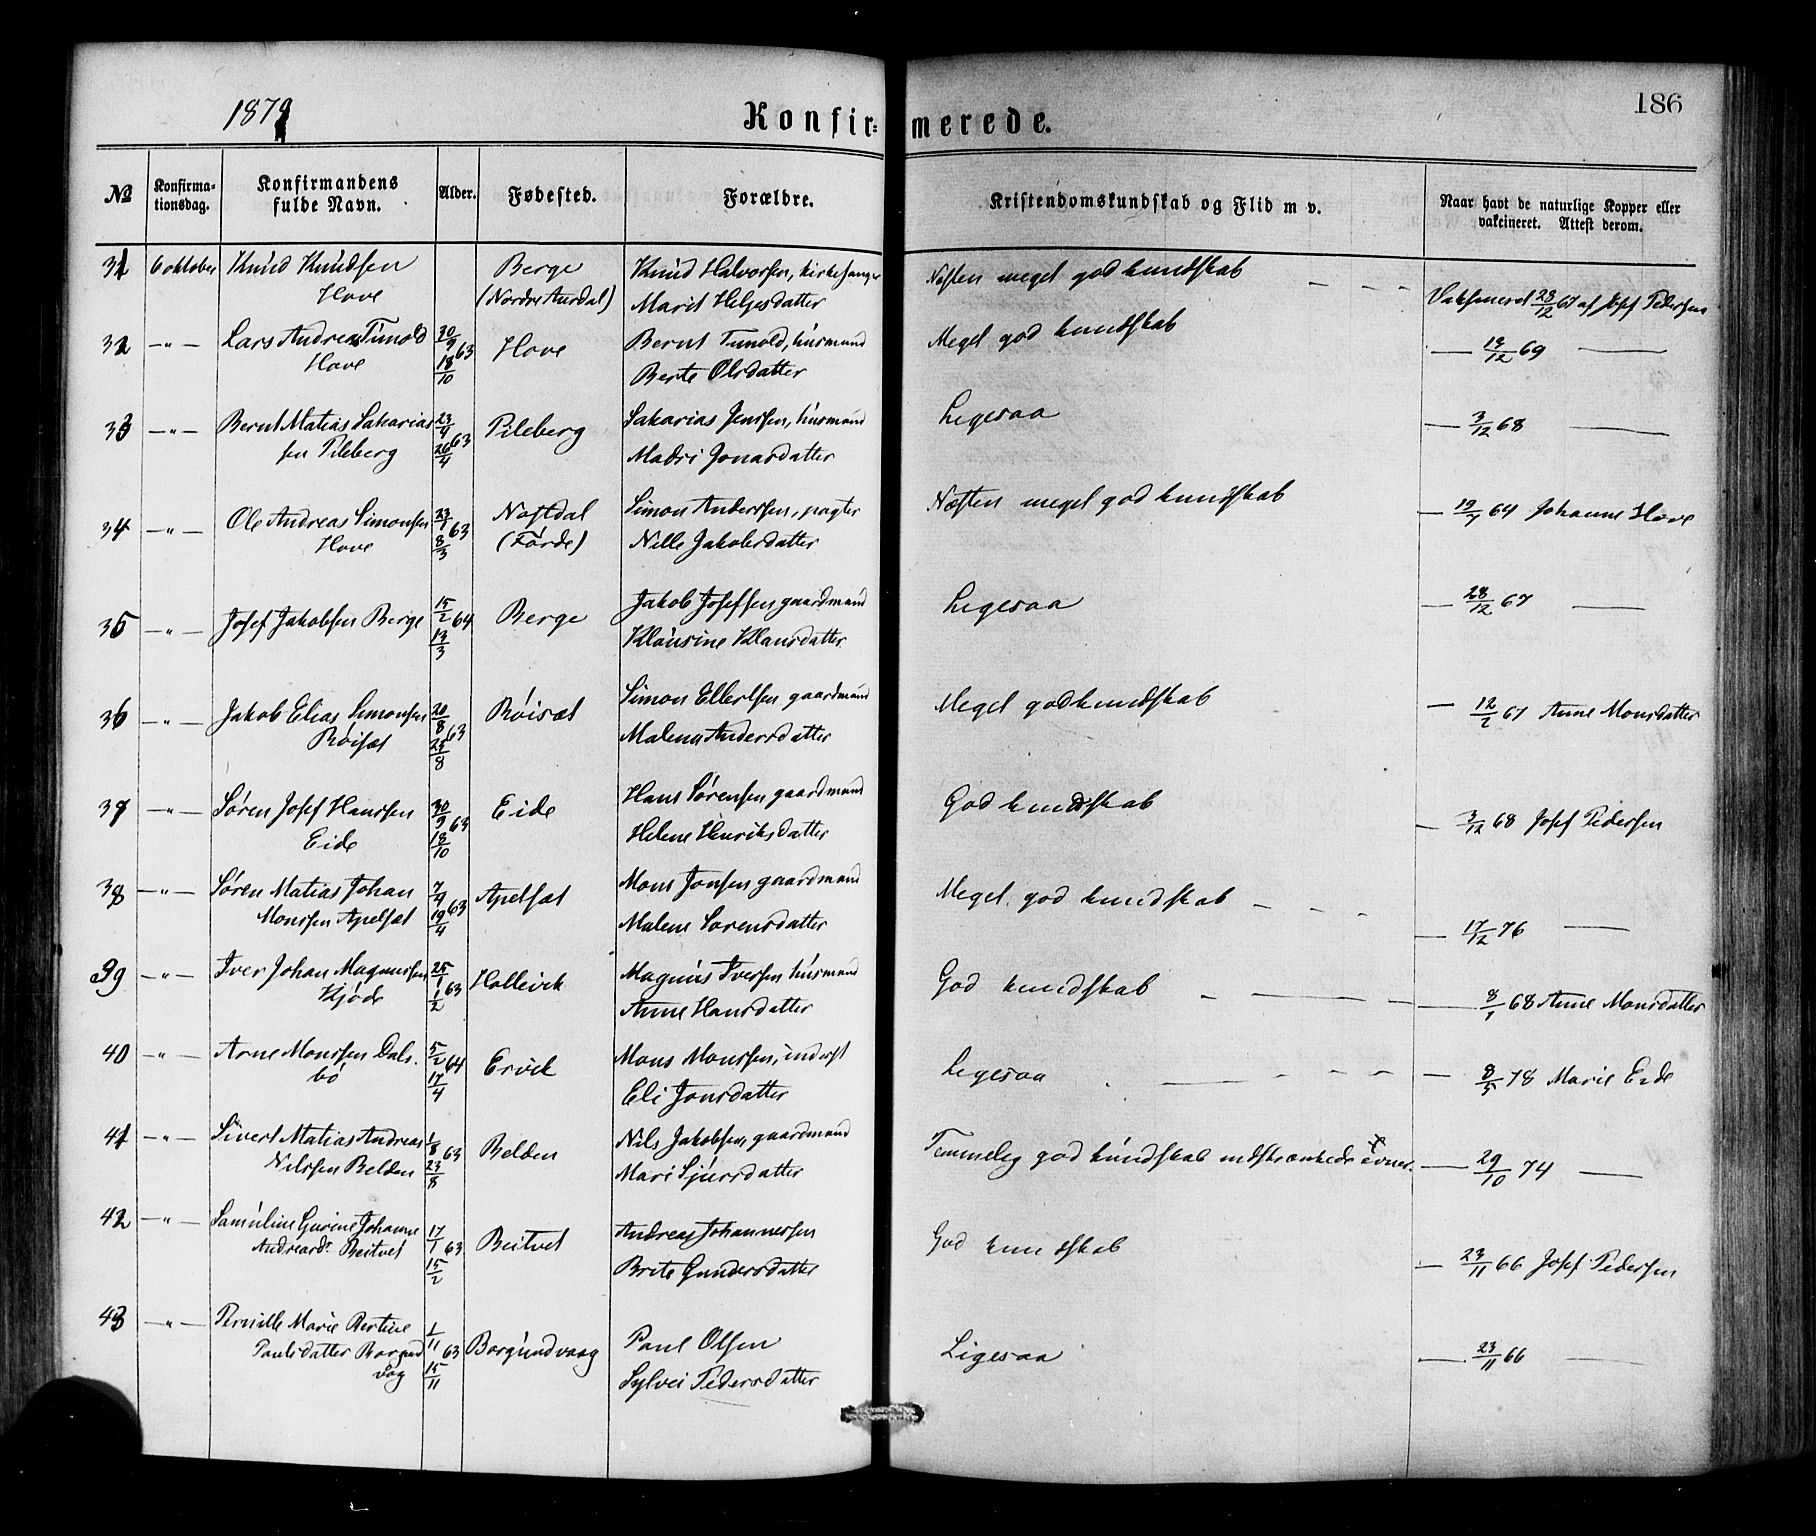 1879
Konfirmerede.
186
No
Konfirma-
tionsdag.
Konfirmandens
fulde Navn.
Alder.
Fødested.
Forældre.
Kristendomskundskab og Flid m v.
Naar havt de naturlige Kopper eller
vakcineret. Attest derom.
31 6 oktober Knud Knudsen Berge Knud Halvorsen, kirkesanger Næsten meget god kundskab — — —
Hove (Nordre Aurdal) Marit Helgesdatter Vaksineret 23/12 67 af Josef Pedersen
32 —"— Lars Andreas Tunold 30/9 63 Hove Bernt Tunold, husmand Meget god kundskab — 13/12 69 —
Hove 18/10 Berte Olsdatter
33 —"— Bernt Matias Sakarias 23/4 63 Pileberg Sakarias Jenssen, husmand Ligesaa — 3/12 68 —
sen Pileberg 26/4 Madri Jonasdatter
34 —"— Ole Andreas Simonsen 23/1 63 Nostdal Simon Anderssen, pagter Næsten meget god kundskab — 19/7 64 Johanne Hove
Hove 8/3 (Førde) Nille Jakobsdatter
35 —"— Josef Jakobsen Berge 15/2 64 Berge Jakob Josefsen gaardmand Ligesaa — 28/12 67 —
13/3 Klausine Klausdatter
36 —"— Jakob Elias Simonsen 20/8 63 Røisæt Simon Ellertsen gaardmand Meget god kundskab — 12/2 67 Anne Monsdatter
Røisæt 23/8 Malena Andersdatter
37 —"— Søren Josef Hanssen 30/9 63 Eide Hans Sørensen gaardmand God kundskab
Eide 18/10 Helene Henriksdatter — 3/12 68 Josef Pedersen
38 —"— Søren Matias Johan 7/4 63 Apelsæt Mons Jonsen gaardmand Meget god kundskab — — —
Monssen Apelsæt 19/4 Malene Sørensdatter — 17/2 76 —
39 —"— Iver Johan Magnussen 25/1 63 Hollevik Magnus Iversen husmand God kundskab — — — — 8/1 68 Anne Monsdatter
Kjøde 1/2 Anne Hansdatter
40 —"— Arne Monssen Dals- 5/2 64 Ervik Mons Monssen, inderst Ligesaa — — — — 8/5 78 Marie Eide
bø 17/4 Eli Jonsdatter
41 —"— Sivert Matias Andreas 1/8 63 Belden Nils Jakobsen, gaardmand Temmelig god kundskab indskrænkede evner. — 29/10 74 —
Nilssen Belden 23/8 Mari Sjursdatter
42 —"— Samuline Gurine Johanne 17/1 63 Beitvet Andreas Johannessen God kundskab
Andreasd. Beitvet 15/2 Brite Gundersdatter — 23/11 66 Josef Pedersen
43 —"— Pernille Marie Bertine 1/11 63 Borgundvaag Paul Olsen Ligesaa — 23/11 66 —
Paulsdatter Borgund 15/11 Sylvei Pedersdatter
vag